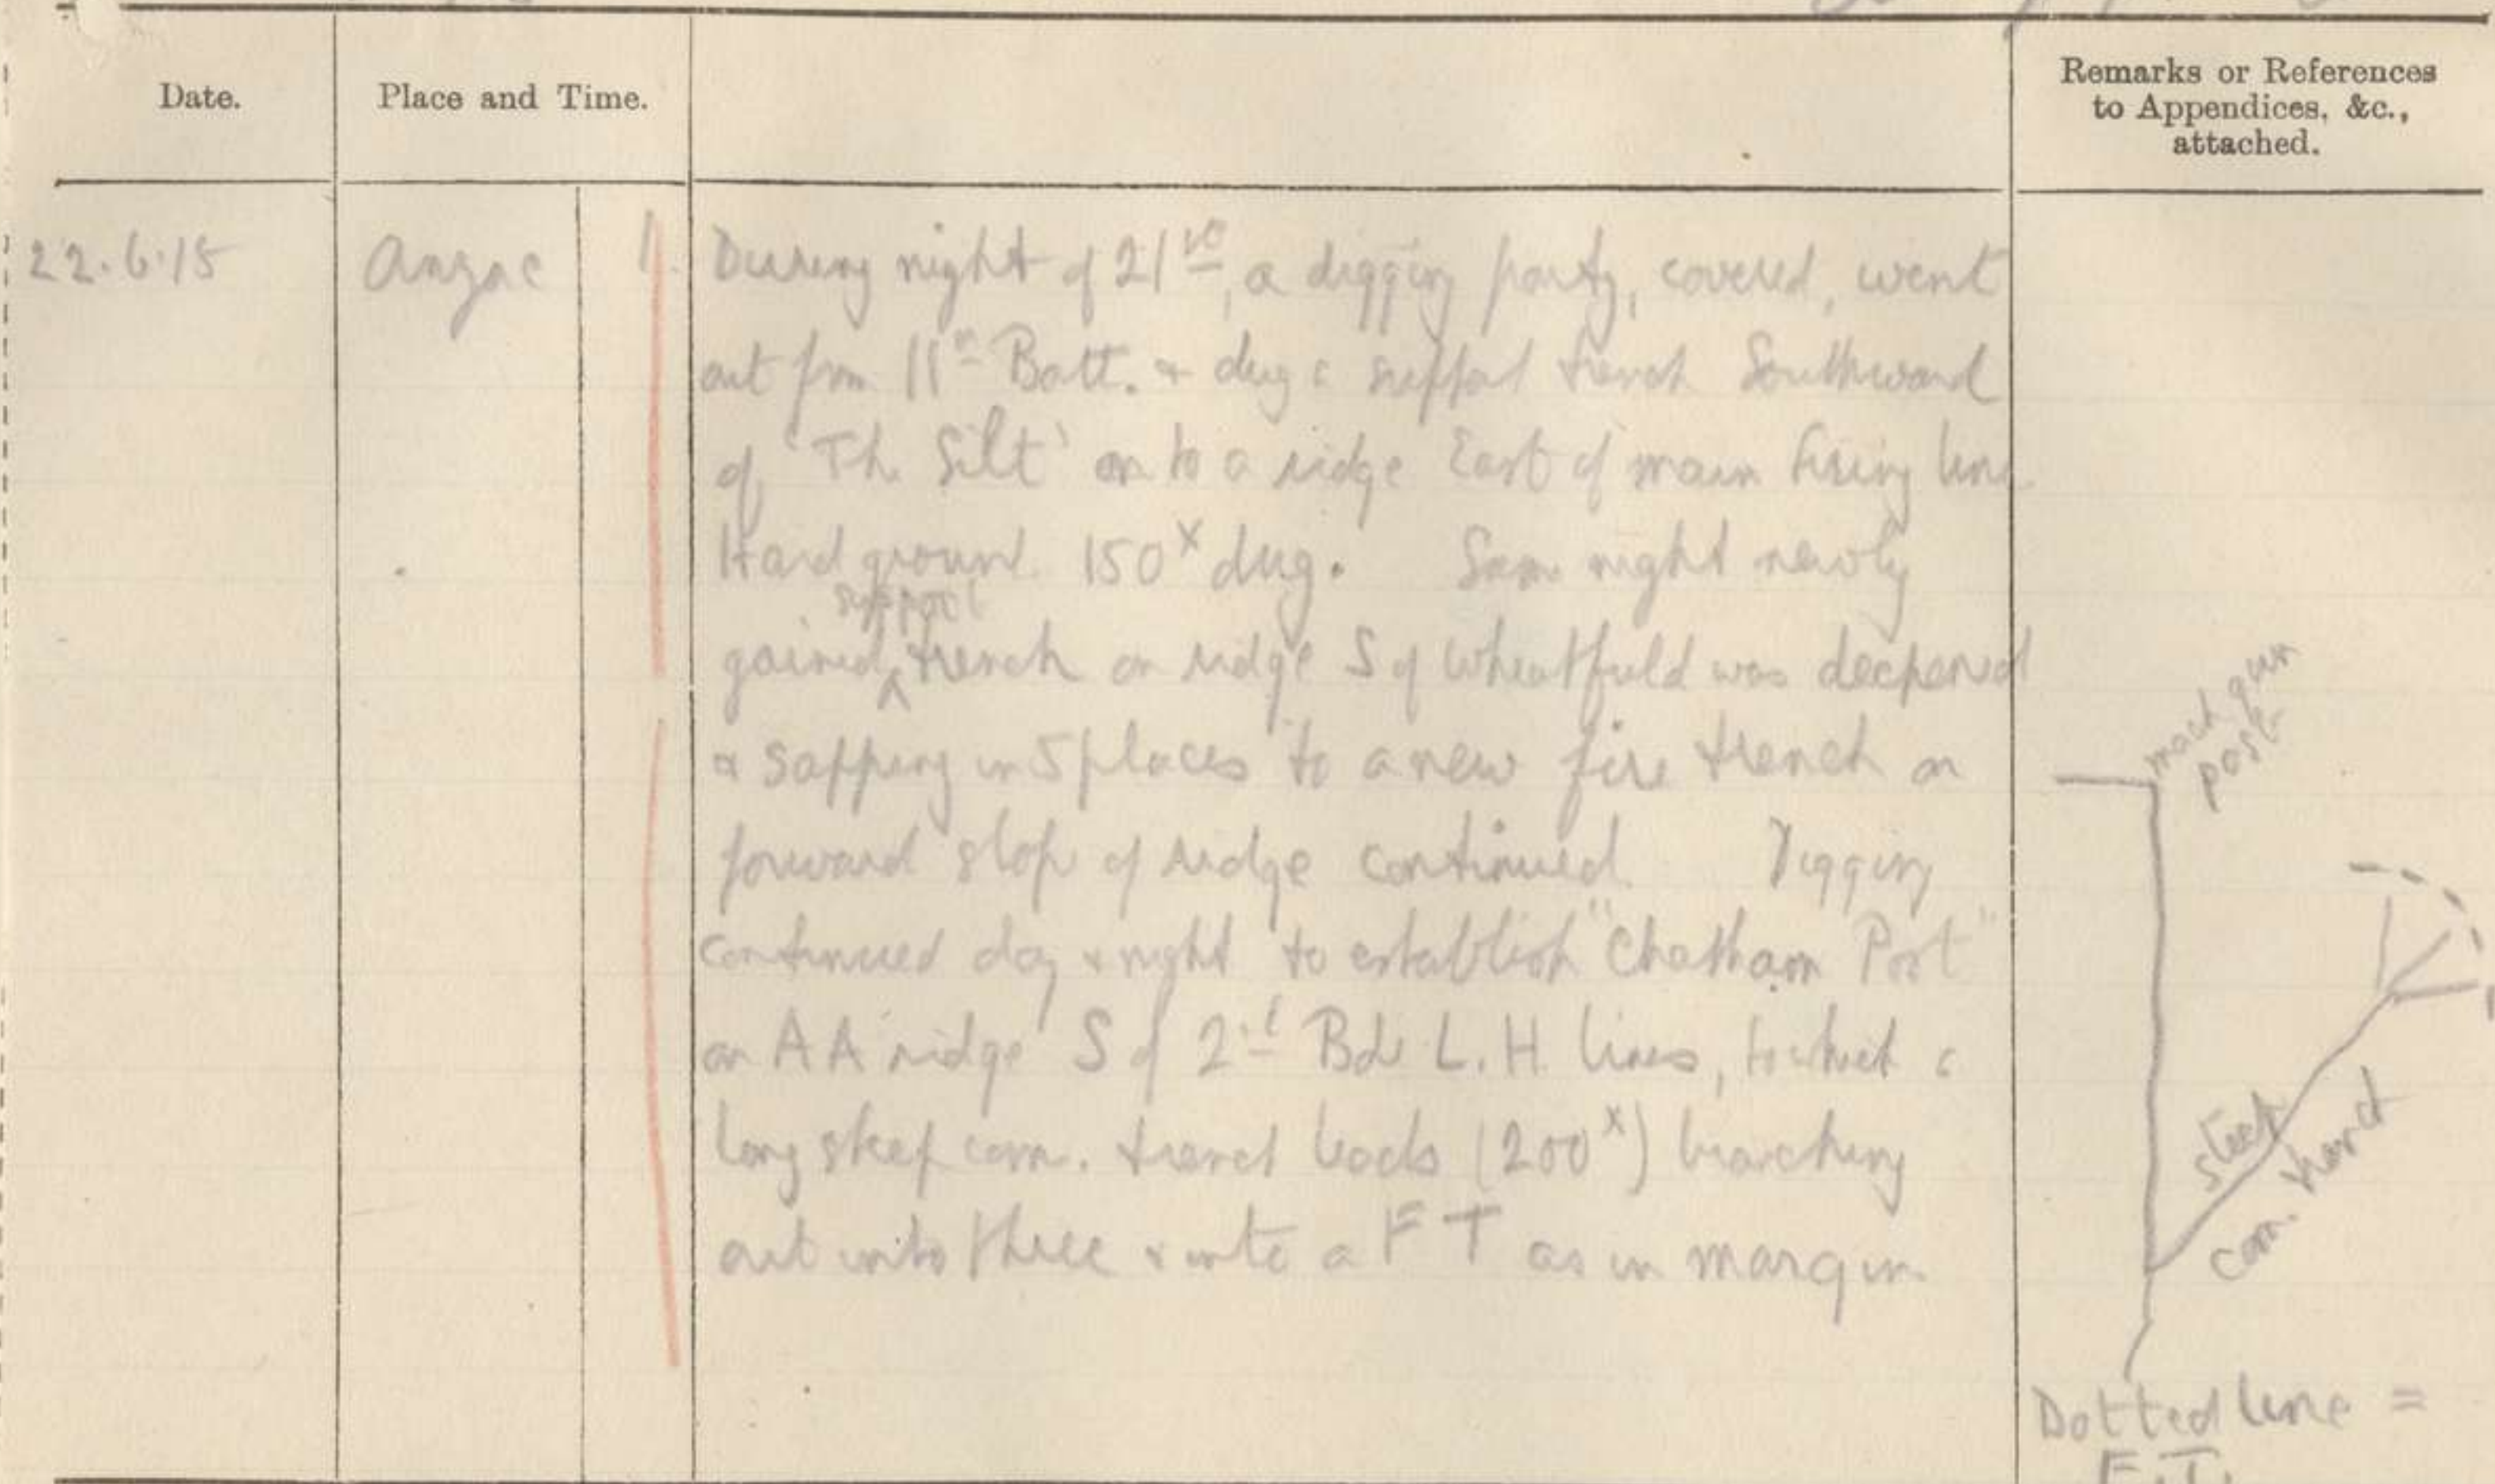 Date.
Place and Time.
Remarks or References
to Appendices, &c.,
attached.
22.6.15
Anzac
1.
During night of 21st, a digging party, covered, went
out from 11th Batt. & dug a support trench Southward
of 'Th Silt' on to a ridge East of main firing line.
Hard ground. 150x dug. Same night newly
support
gained ^ trench on ridge S of Wheatfield was deepened
& sapping in 5 places to a new fire trench on
forward slope of ridge continued. Digging
continued day & night to establish "Chatham Post"
on AA ridge S of 2nd Bde L.H. lines, to which a
long steep com. trench leads (200x) branching
out into three & into a F T as in margin
mach gun
post
steep
com. trench
Dotted line =
F.T.